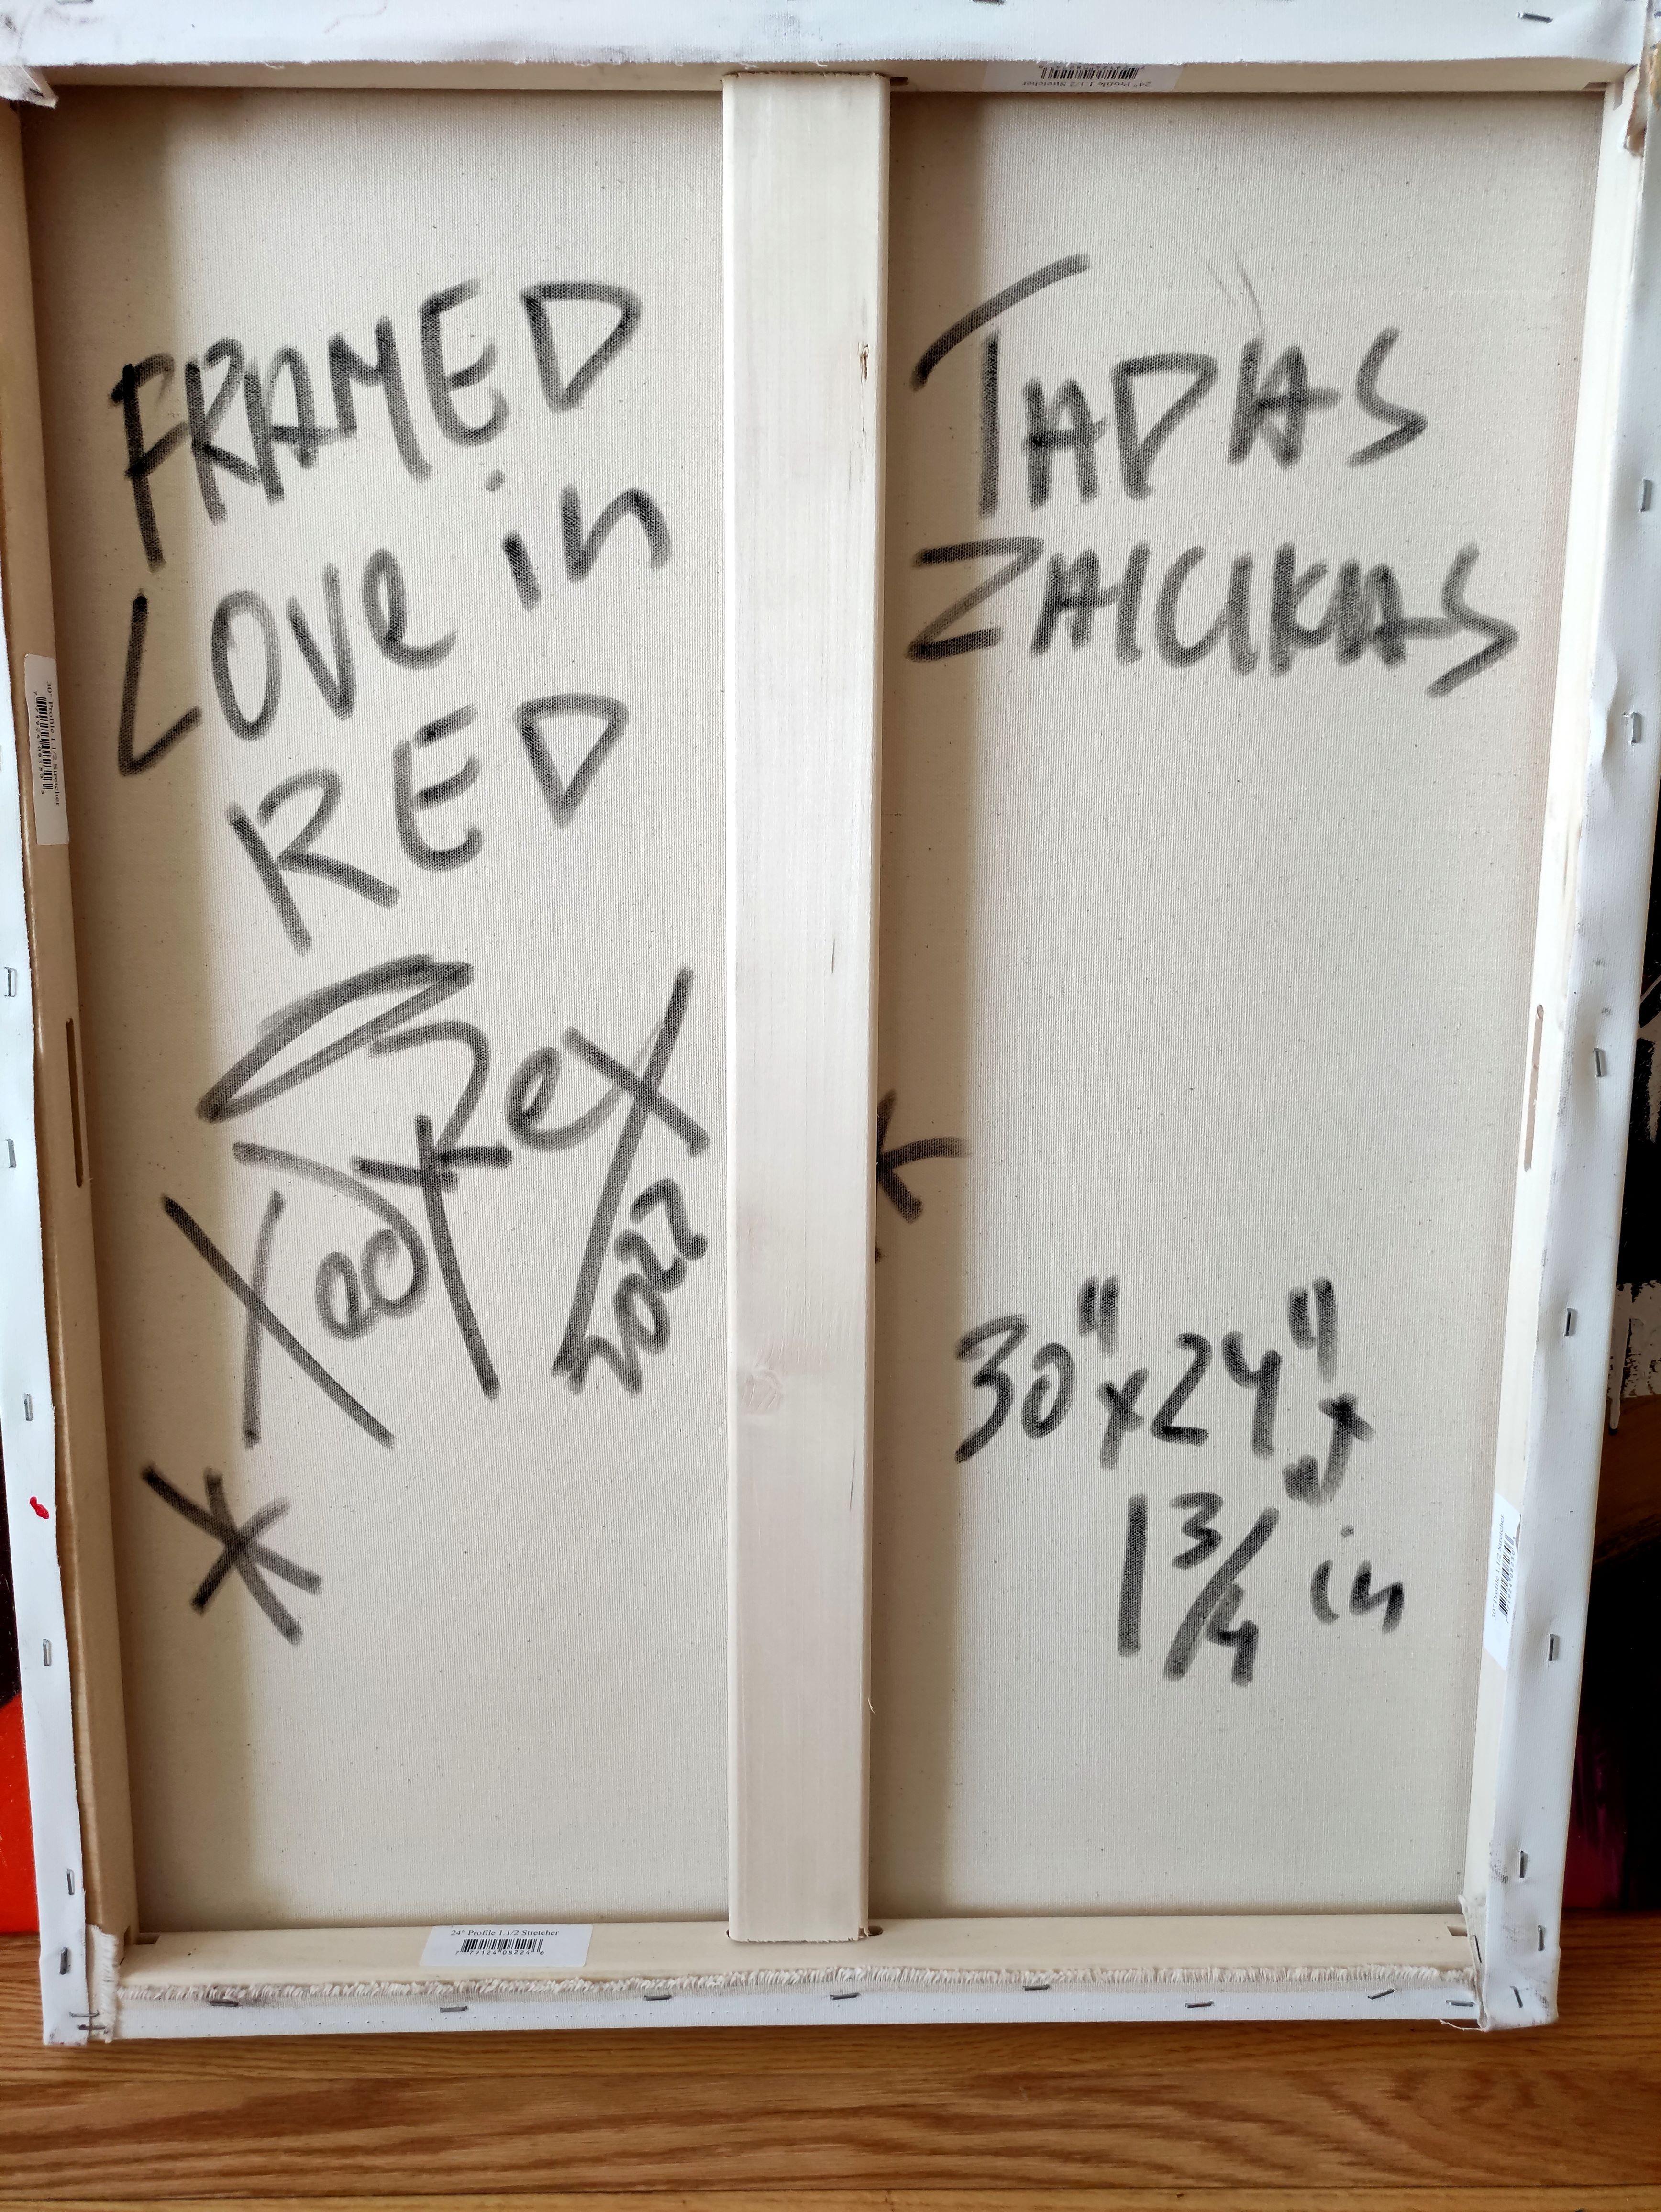 FRAMED
LOVe in
RED
2022
TADAS
ZAICIKAS
30" x 24" x
1 3/4 in
24" Profile 1 1/2 Stretcher
30" Profile 1 1/2 Stretcher
30" Profile 1 1/2 Stretcher
24" Profile 1 1/2 Stretcher